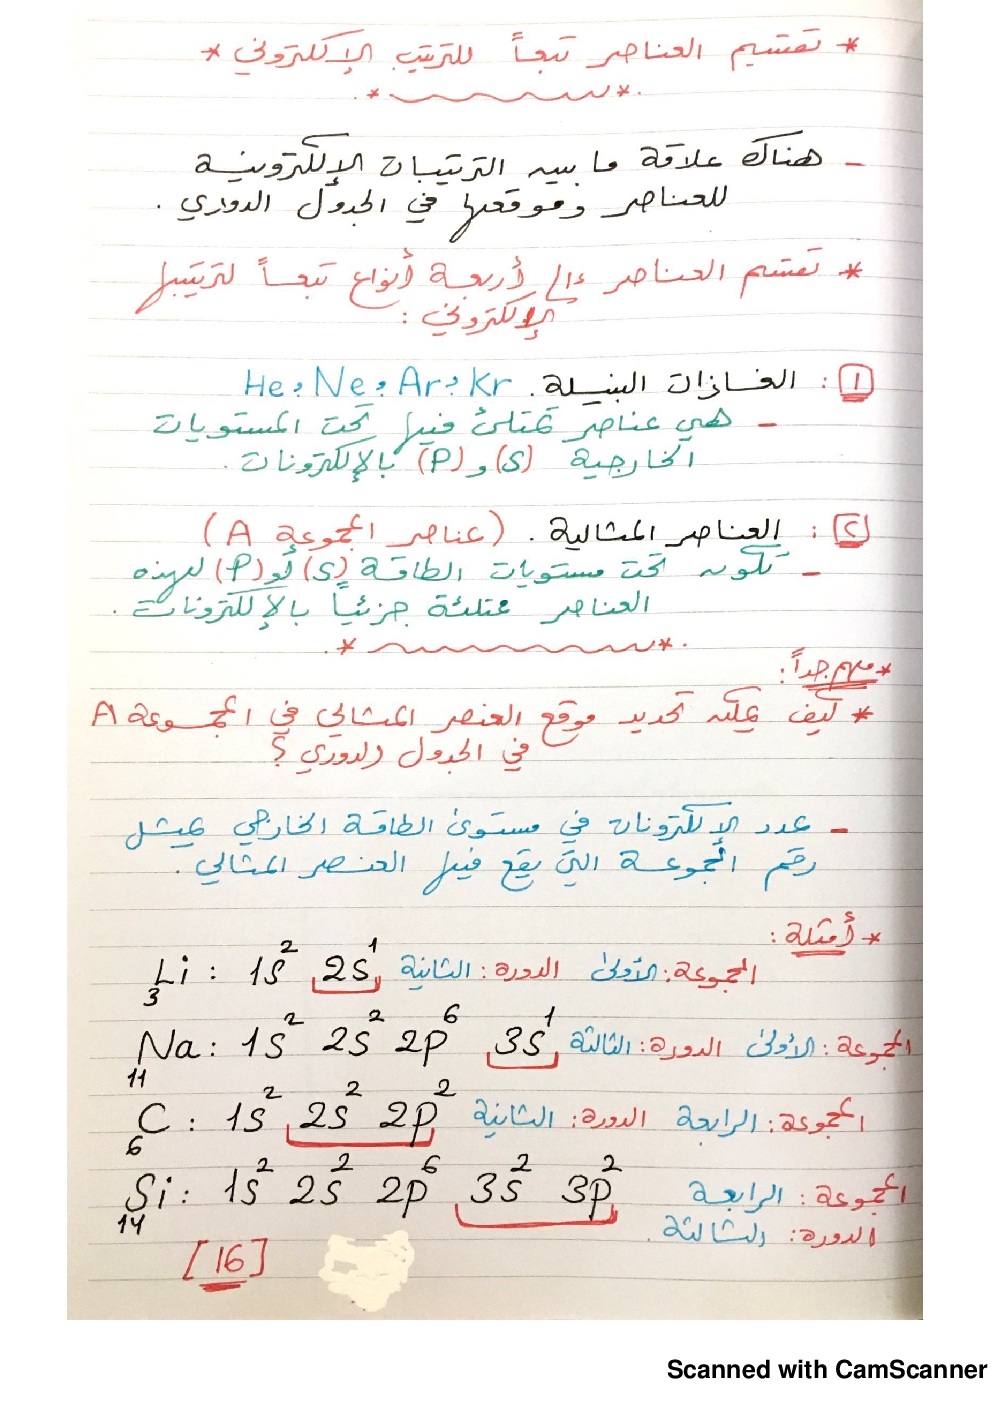 * تقسيم العناصر تبعاً للترتيب الإلكتروني *
- هناك علاقة ما بين الترتيبات الإلكترونية
للعناصر وموقعها في الجدول الدوري .
* تقسم العناصر إلى أربعة أنواع تبعاً لترتيبها
الإلكتروني :
1 : الغازات النبيلة . He , Ne , Ar , Kr
- هي عناصر تمتلئ فيها تحت المستويات
الخارجية (s) و (P) بالإلكترونات .
2 : العناصر المثالية . (عناصر المجموعة A)
- تكون تحت مستويات الطاقة (s) أو (P) لهذه
العناصر ممتلئة جزئياً بالإلكترونات .
* مهم جداً :
* كيف يمكن تحديد موقع العنصر المثالي في المجموعة A
في الجدول الدوري ؟
- عدد الإلكترونات في مستوى الطاقة الخارجي يمثل
رقم المجموعة التي يقع فيها العنصر المثالي .
* أمثلة :
₃Li : 1s² 2s¹ المجموعة : الأولى الدورة : الثانية
₁₁Na : 1s² 2s² 2p⁶ 3s¹ المجموعة : الأولى الدورة : الثالثة
₆C : 1s² 2s² 2p² المجموعة : الرابعة الدورة : الثانية
₁₄Si : 1s² 2s² 2p⁶ 3s² 3p² المجموعة : الرابعة
الدورة : الثالثة .
[16]
Scanned with CamScanner